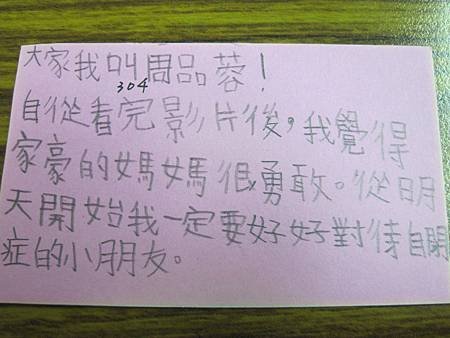 大家我叫周品蓉！
304
自從看完影片後，我覺得
家豪的媽媽很勇敢。從明
天開始我一定要好好對待自閉
症的小朋友。